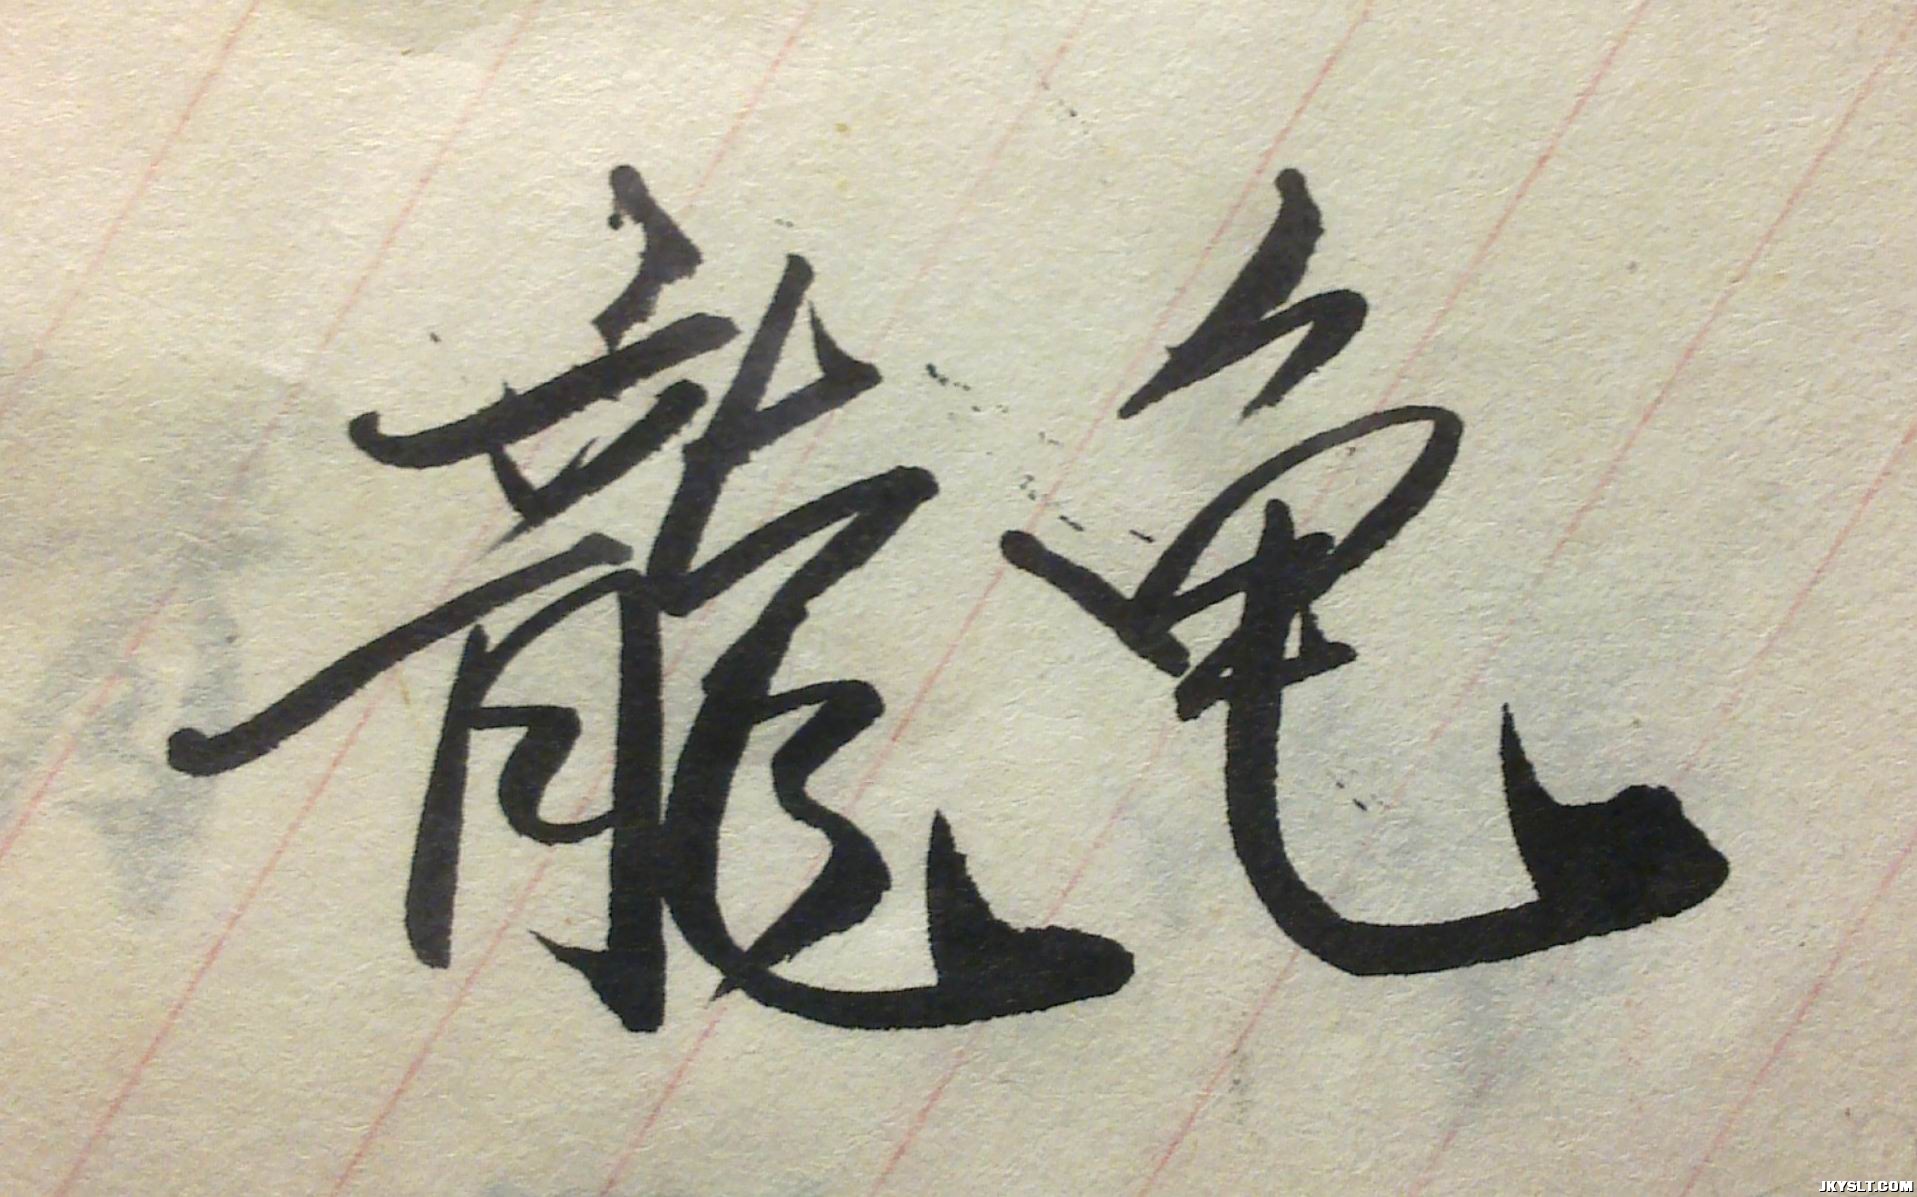 龍龟
JKYSLT.COM